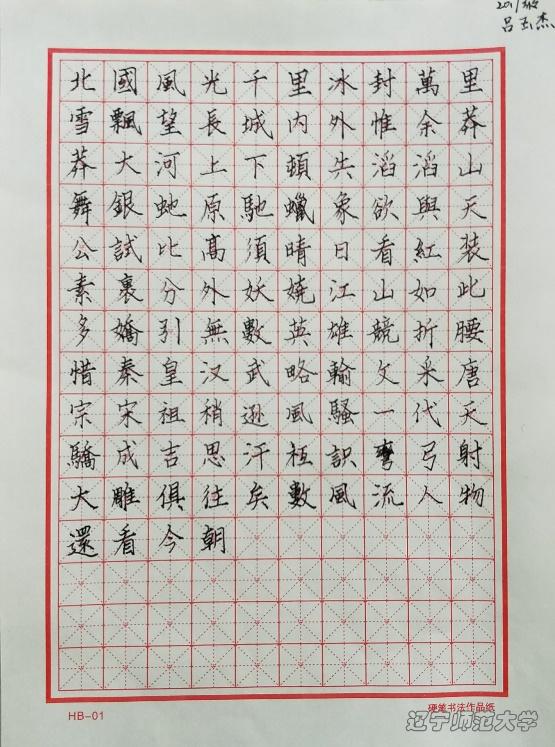 2017级
吕玉杰
北國風光千里冰封萬里
雪飄望長城内外惟余莽
莽大河上下頓失滔滔山
舞銀虵原馳蠟象欲與天
公試比髙須晴日看紅裝
素裹分外妖嬈江山如此
多嬌引無數英雄競折腰
惜秦皇汉武略輸文采唐
宗宋祖稍遜風騷一代天
驕成吉思汗衹識彎弓射
大雕俱往矣數風流人物
還看今朝
HB-01
硬笔书法作品纸
辽宁师范大学